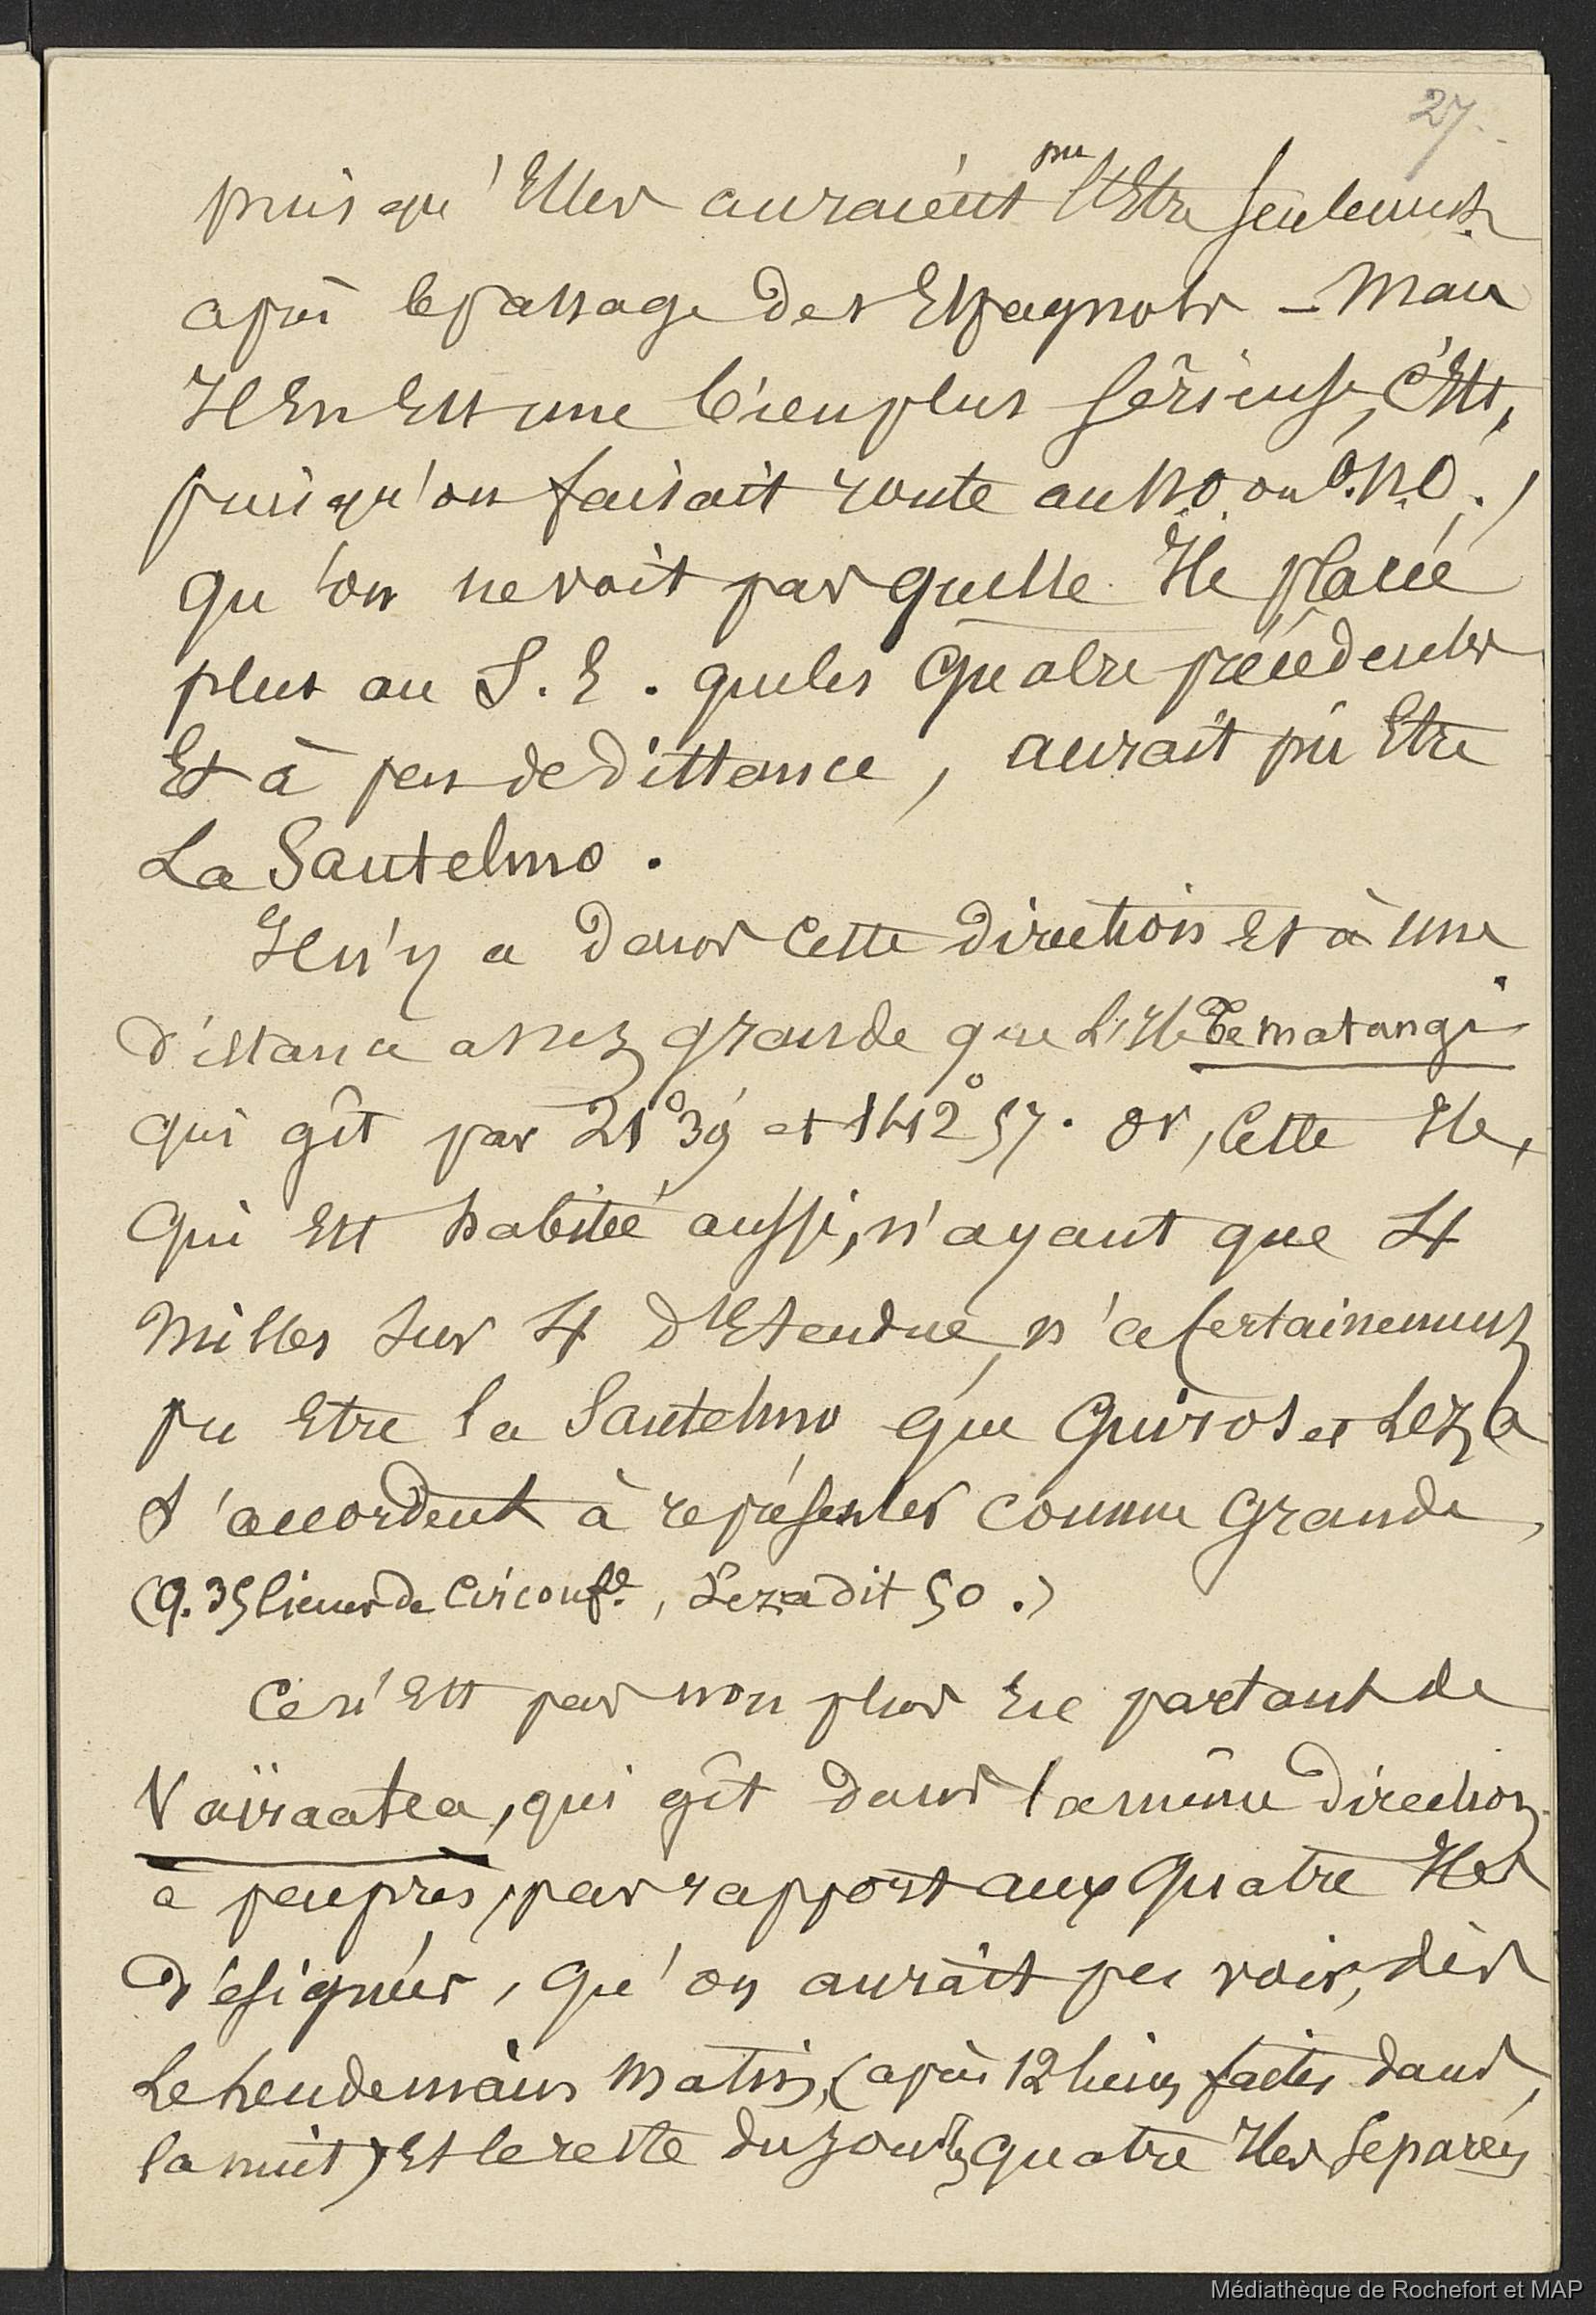 27.
puisqu'Elles auraient pu l'Etre seulement
après le passage des Espagnols - Mais
Il En Est une bien plus sérieuse, c'Est,
puisqu'on faisait route au N.O. ou O.N.O.,
qu'on ne voit pas quelle Ile placée
plus au S.E. que les quatre précédentes
Et à peu de distance, aurait pû Etre
La Santelmo.
Il n'y a dans cette direction Et à une
distance assez grande que l'Ile Tematangi
qui gît par 21°39' et 142°57. Or, cette Ile,
qui Est habitée aussi, n'ayant que 4
Milles sur 4 d'Etendue, n'a certainement
pu Etre la Santelmo que Quiros et Leza
s'accordent à représenter comme grande,
(Q. 35 lieues de circonfce, Leza dit 50.)
Ce n'Est pas non plus En partant de
Vaïraatea, qui gît dans la même direction
à peu près, par rapport aux quatre Iles
désignées, qu'on aurait pu voir, dès
Le Lendemain Matin, (après 12 lieues faites dans
la nuit) Et le reste du jour, les quatre Iles séparées
Médiathèque de Rochefort et MAP